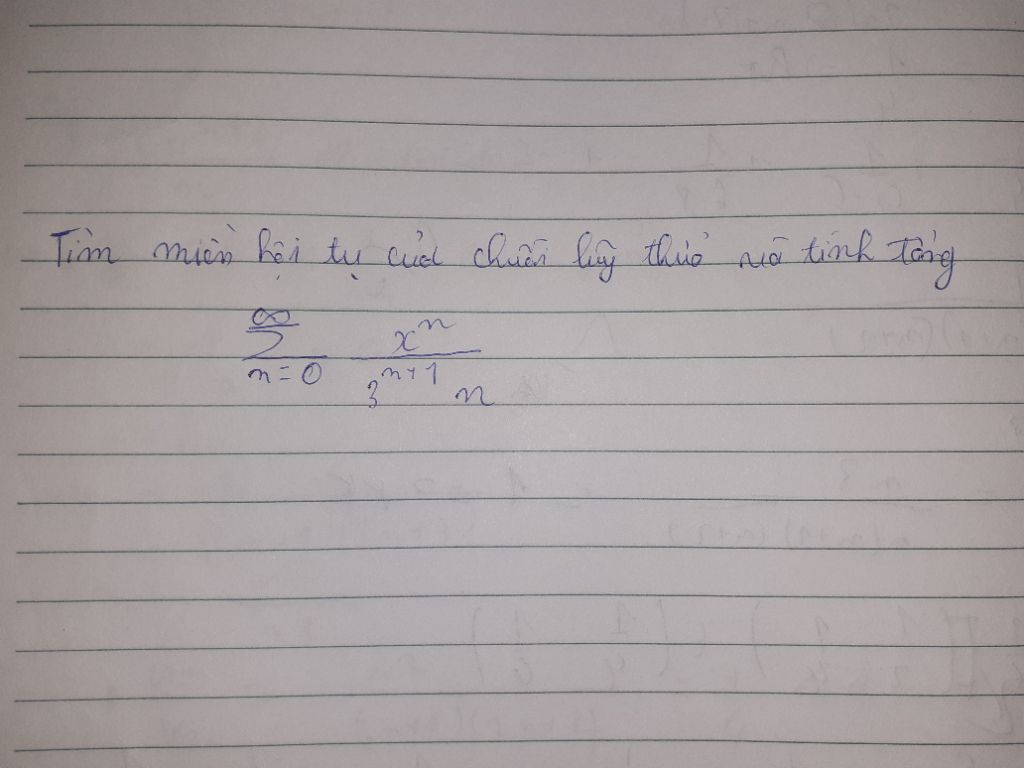 Tìm miền hội tụ của chuỗi lũy thừa và tính tổng
∞
∑ x^n
n=0 3^{n+1} n